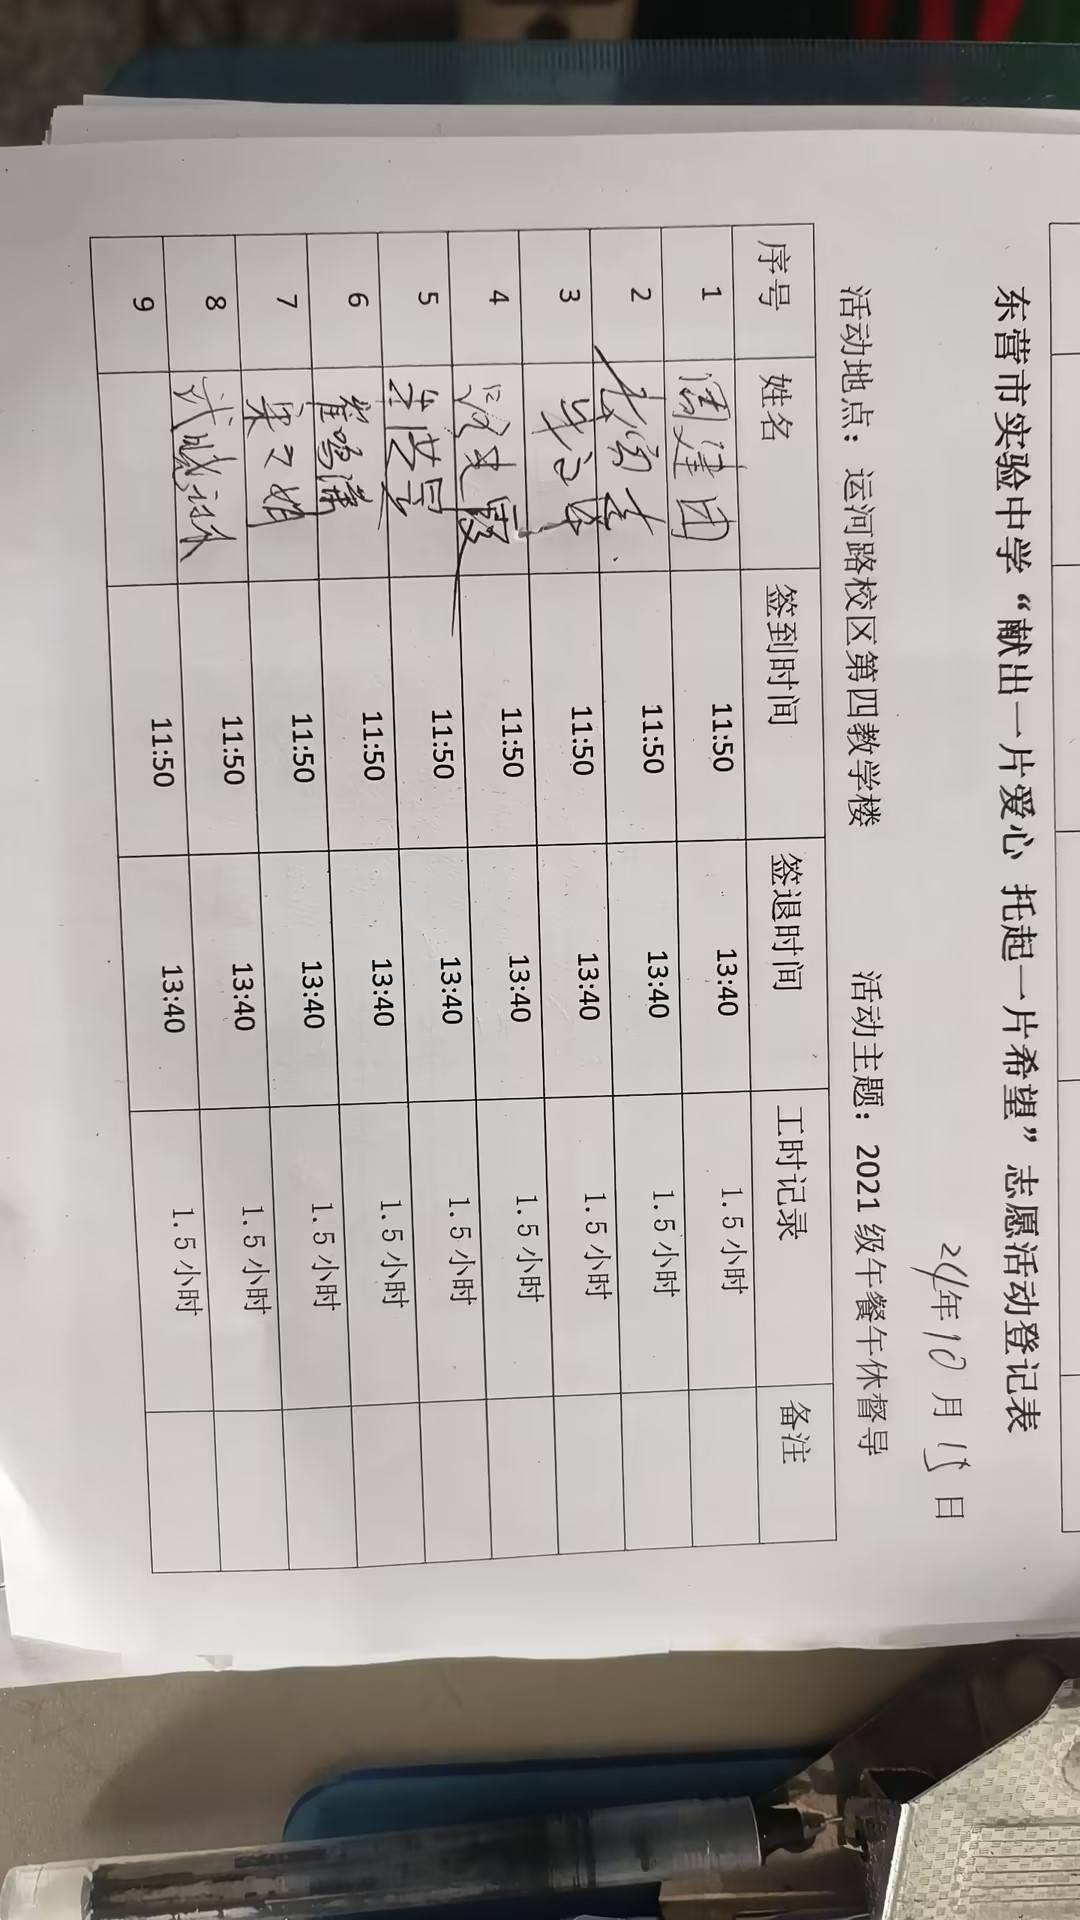 东营市实验中学“献出一片爱心 托起一片希望”志愿活动登记表
24年10月15日
活动地点：运河路校区第四教学楼 活动主题：2021级午餐午休督导
序号 姓名 签到时间 签退时间 工时记录 备注
1 周建团 11:50 13:40 1.5小时
2 11:50 13:40 1.5小时
3 11:50 13:40 1.5小时
4 11:50 13:40 1.5小时
5 11:50 13:40 1.5小时
6 崔鸣潇 11:50 13:40 1.5小时
7 11:50 13:40 1.5小时
8 11:50 13:40 1.5小时
9 11:50 13:40 1.5小时